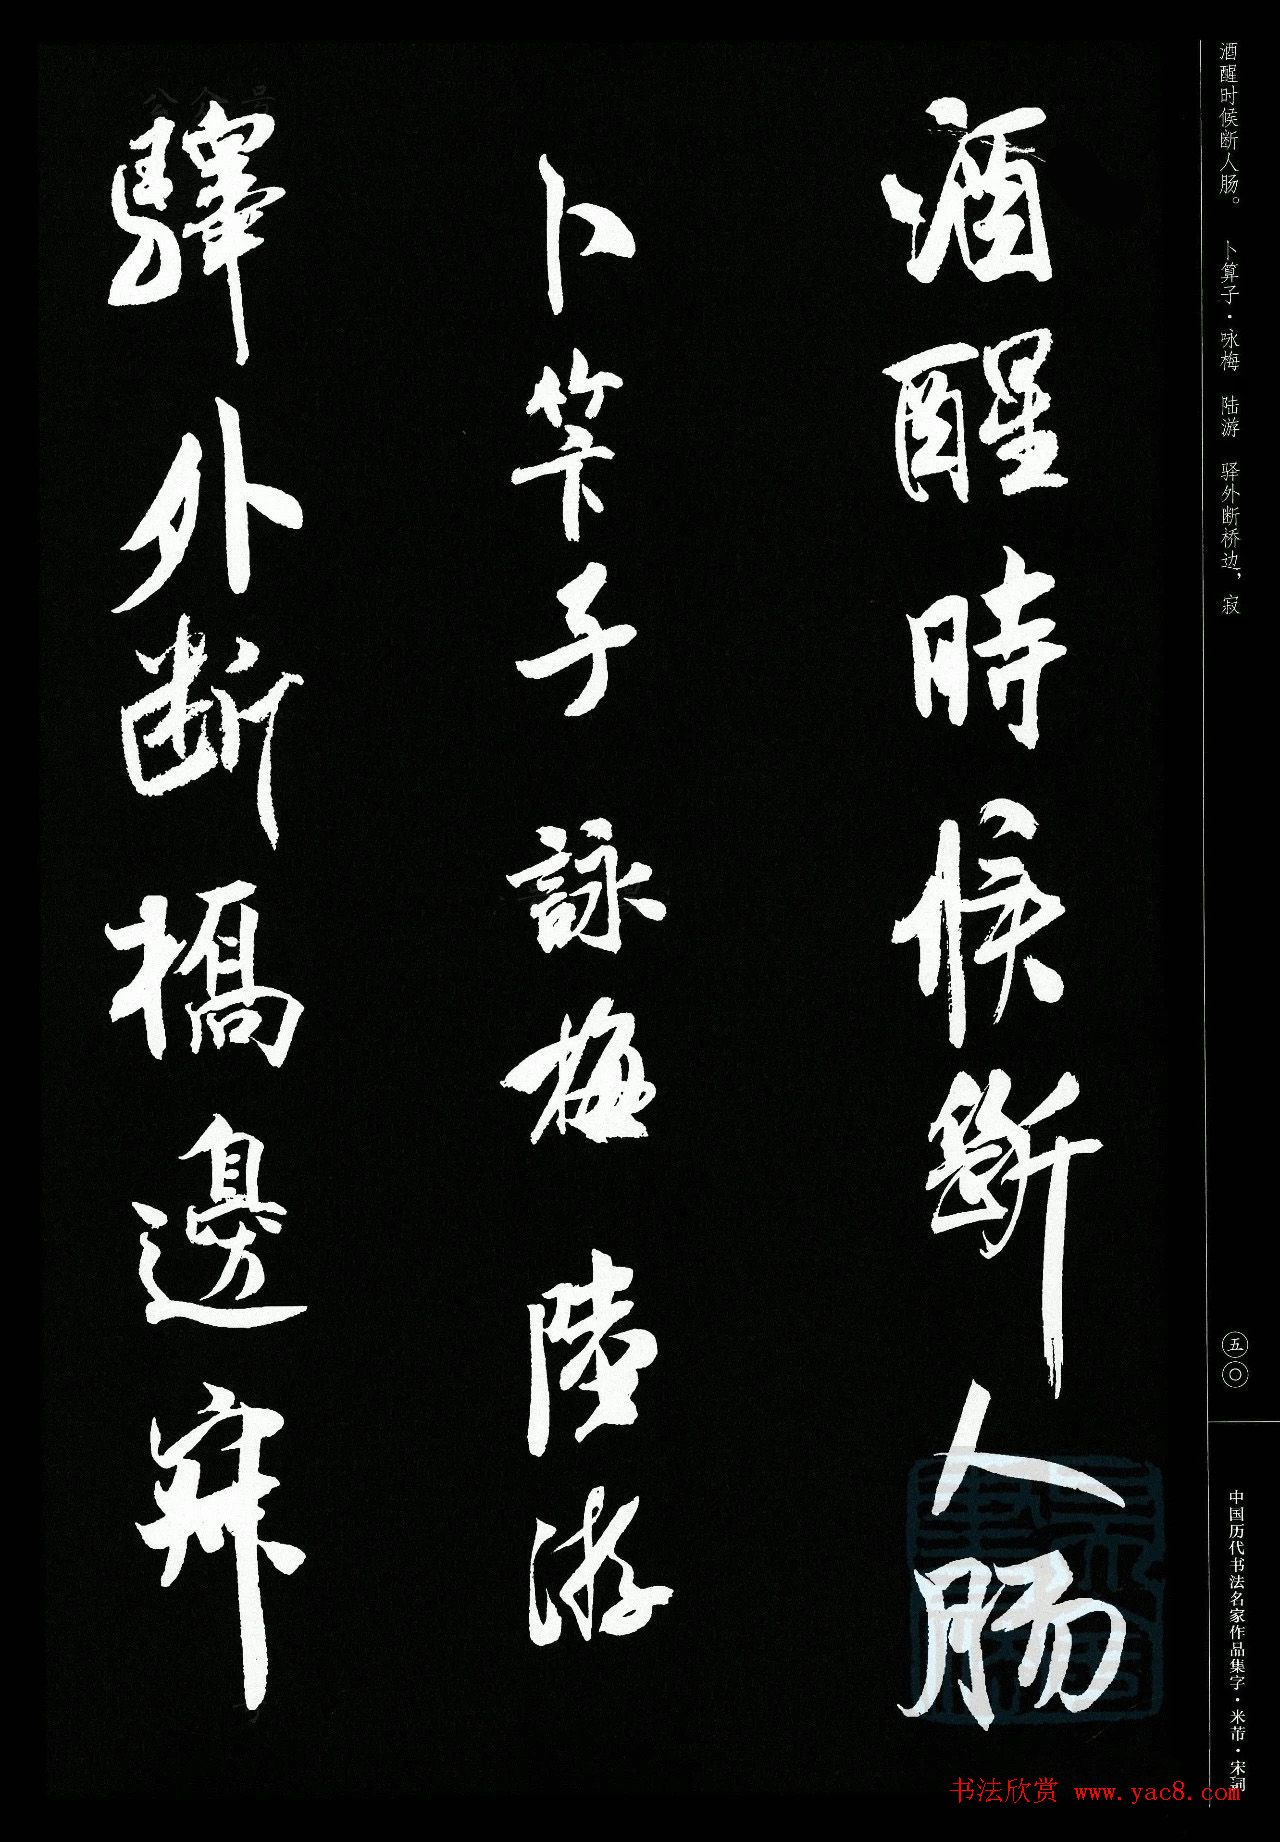 酒醒時候斷人腸
卜笇子 詠梅 陸游
驛外断橋邊寂
酒醒时候断人肠。 卜算子·咏梅 陆游 驿外断桥边，寂
五〇
中国历代书法名家作品集字·米芾·宋词
书法欣赏 www.yac8.com